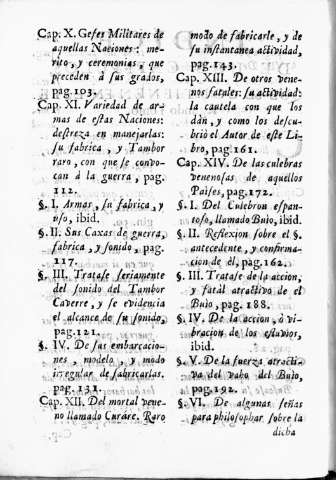 Cap. X. Gefes Militares de
aquellas Naciones: me-
rito, y ceremonias, que
preceden à sus grados,
pag. 103.
Cap. XI. Variedad de ar-
mas de estas Naciones:
destreza en manejarlas:
su fabrica, y Tambor
raro, con que se convo-
can à la guerra, pag.
112.
§. I. Armas, su fabrica, y
uso, ibid.
§. II. Sus Caxas de guerra,
fabrica, y sonido, pag.
117.
§. III. Tratase seriamente
del sonido del Tambor
Caverre, y se evidencia
el alcance de su sonido,
pag. 121.
§. IV. De sus embarcacio-
nes, modelo, y modo
irregular de fabricarlas,
pag. 131.
Cap. XII. Del mortal vene-
no llamado Curáre. Raro
modo de fabricarle, y de
su instantanea actividad,
pag. 143.
Cap. XIII. De otros vene-
nos fatales: su actividad:
la cautela con que los
dàn, y como los descu-
briò el Autor de este Li-
bro, pag. 161.
Cap. XIV. De las culebras
venenosas de aquellos
Países, pag. 172.
§. I. Del Culebron espan-
toso, llamado Buìo, ibid.
§. II. Reflexion sobre el §.
antecedente, y confirma-
cion de èl, pag. 162.
§. III. Tratase de la accion,
y fatàl atractivo de el
Buìo, pag. 188.
§. IV. De la accion, ò vi-
bracion de los efluvios,
ibid.
§. V. De la fuerza atracti-
va del vaho del Buìo,
pag. 192.
§. VI. De algunas señas
para philosophar sobre la
dicha